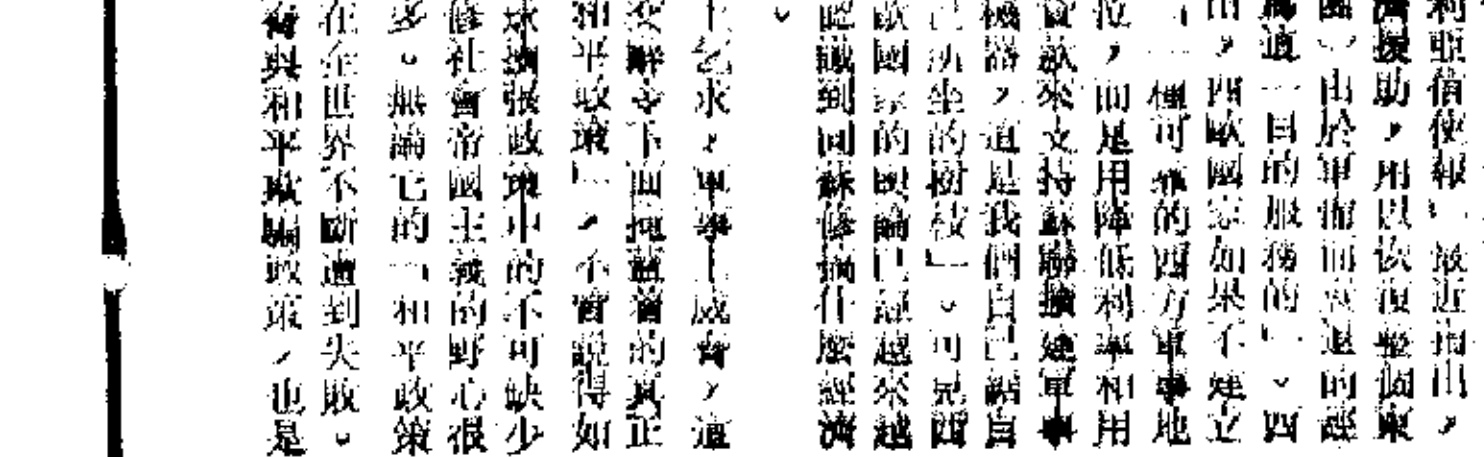 利亞信使報」最近指出，
濟援助，用以恢復整個東
國）由於軍備而衰退的經
為這一目的服務的」。西
出，西歐國家如果不建立
「一種可靠的西方軍事地
位，而是用降低利率和用
貸款來支持蘇聯擴建軍事
機器，這是我們自己鋸自
己所坐的樹枝」。可見西
歐國家的輿論已經越來越
認識到同蘇修搞什麼經濟
。
上乞求，軍事上威脅，這
交辭令下面掩蓋着的真正
和平政策」，不管說得如
求擴張政策中的不可缺少
修社會帝國主義的野心很
多。無論它的「和平政策
在全世界不斷遭到失敗。
脅與和平政騙政策，也是